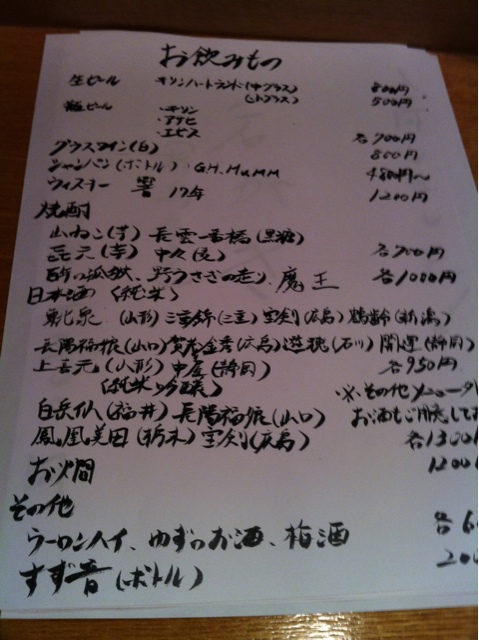 お飲みもの
生ビール キリンハートランド(中グラス) 800円
(小グラス) 500円
瓶ビール ・キリン
・アサヒ
・エビス 各700円
グラスワイン(白) 800円
シャンパン(ボトル) G.H.MUMM
ウィスキー 響 17年 1200円
焼酎
山ねこ(芋) 長雲一番橋(黒糖)
㐂元(芋) 中々(麦) 各700円
百年の孤独、野うさぎの走り、魔王 各1000円
日本酒 (純米)
東北泉 (山形) 三重錦(三重) 宝剣(広島) 鶴齢(新潟)
長陽福娘(山口) 賀茂金秀(広島) 遊穂(石川) 開運(静岡)
上喜元(山形) 中屋(静岡) 各950円
(純米吟醸) ※その他メニュー
白岳仙(福井) 長陽福娘(山口) お酒もご用意して
鳳凰美田(栃木) 宝剣(広島) 各1300
お火間 1200
その他
ウーロンハイ、ゆずのお酒、梅酒 各6
すず音(ボトル) 200